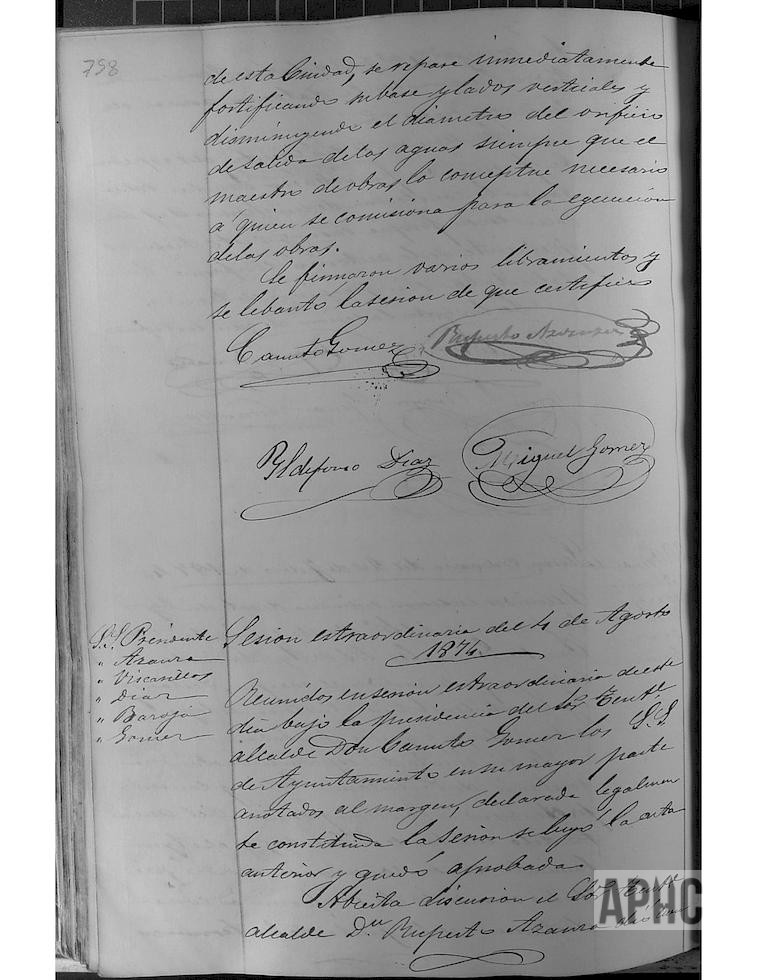 798
de esta Ciudad, se repare inmediatamente
fortificando su base y lados verticales y
disminuyendo el diametro del orificio
de salida de las aguas siempre que el
maestro de obras lo conceptue necesario
á quien se comisiona para la egecucion
de las obras.
Se firmaron varios libramientos y
se lebantó la sesion de que certifico
Canuto Gomez
Ruperto Azaura
Yldefonso Diaz
Miguel Gomez
S.S. Presidente
" Azaura
" Viscasillas
" Diaz
" Baroja
" Gomez
Sesion estraordinaria del 4 de Agosto
1874.
Reunidos en sesion estraordinaria de este
dia bajo la presidencia del Sor. Tente.
alcalde Don Canuto Gomez los S.S.
de Ayuntamiento en su mayor parte
anotados al margen, declarada legalmen
te constituida la sesion se leyó la acta
anterior y quedó aprobada.
Abierta discusion el Sor. Tente.
alcalde Dn. Ruperto Azaura
APHC